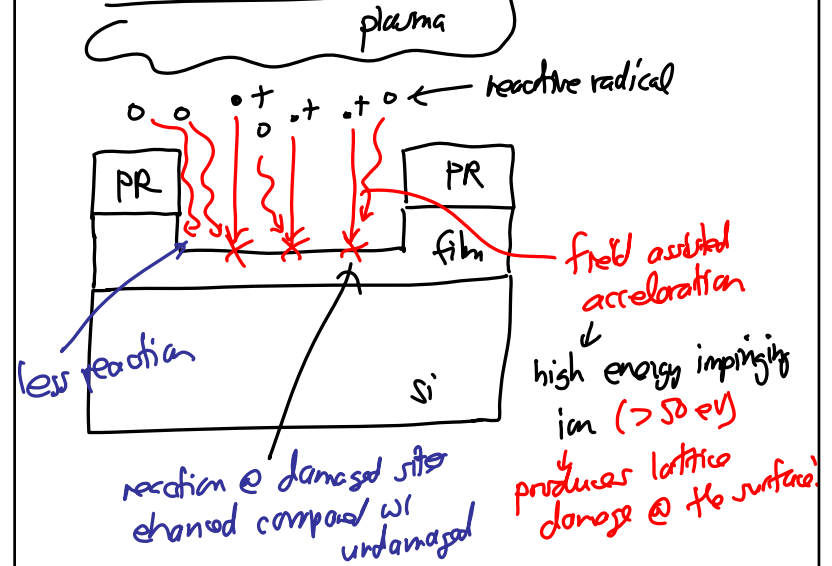 plasma
reactive radical
+
+
+
PR
PR
film
field assisted
acceleration
less reaction
high energy impinging
ion (>50 eV)
Si
produces lattice
damage @ the surface.
reaction @ damaged sites
enhanced compared w/
undamaged